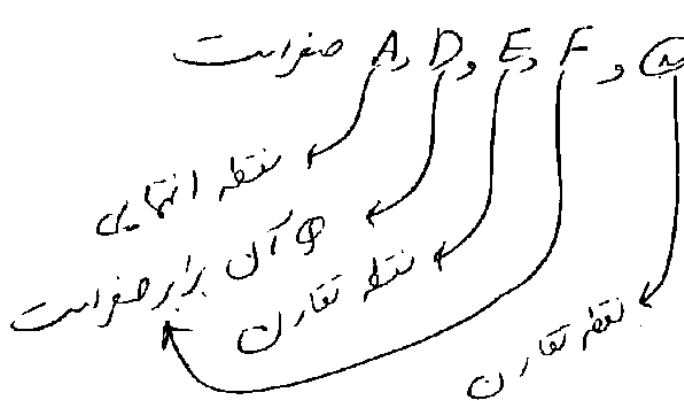 N و F و E و D و A صفر است
نقطه انتهایی
φ آن برابر صفر است
نقطه تقارن
نقطه تقارن